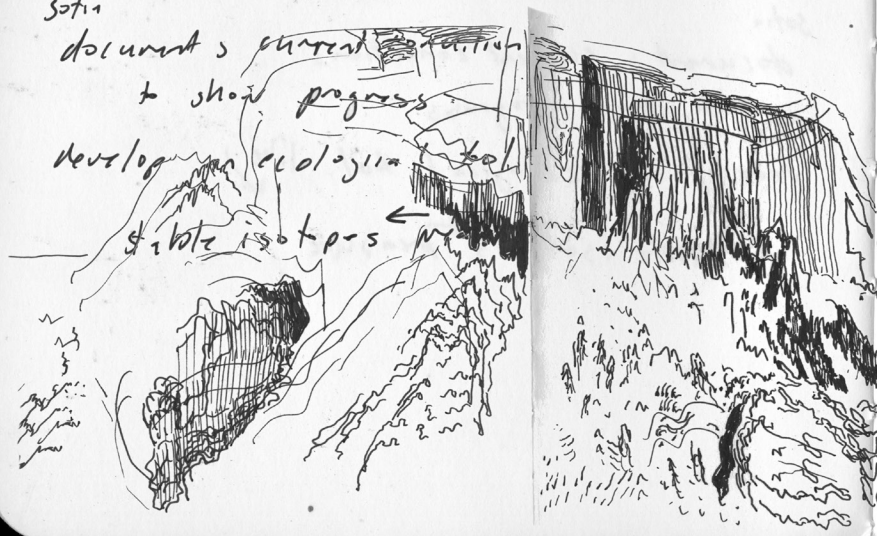 sofia
document s current condition
to show progress
develop an ecological tool
stable isotopes ←